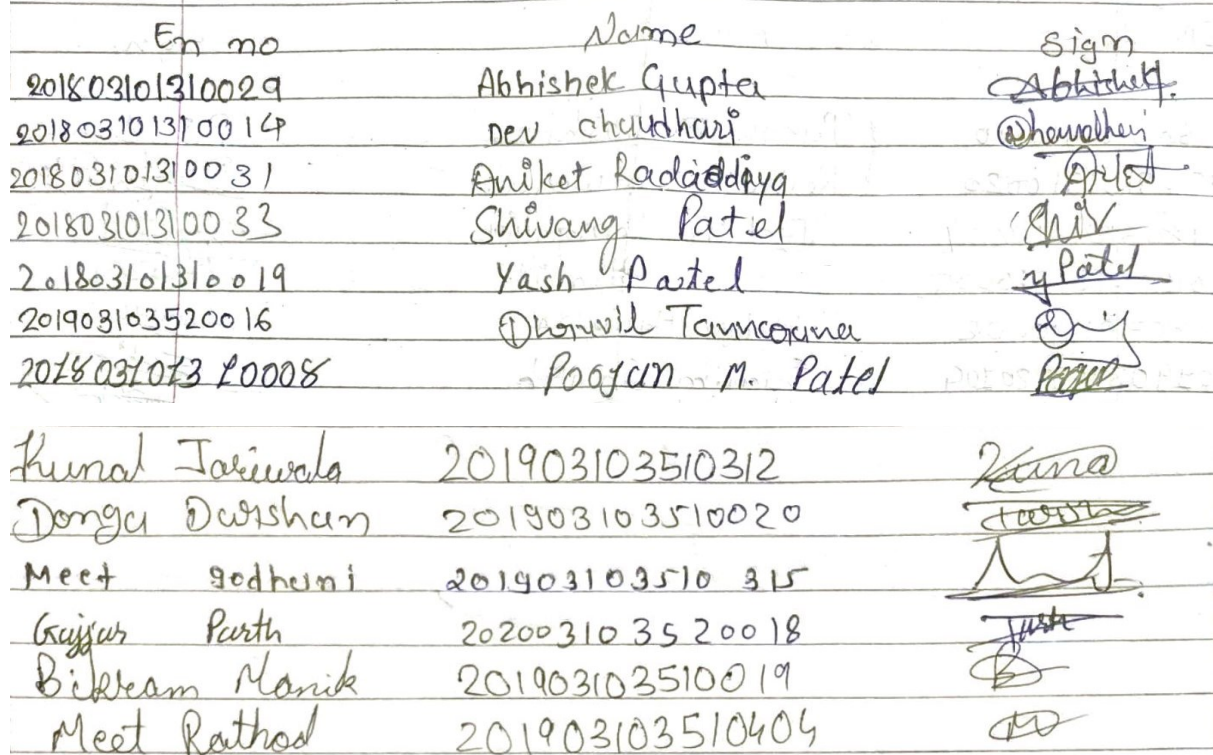 En no Name Sign
201803101310029 Abhishek Gupta Abhishek.
201803101310014 Dev Chaudhari Dhawdhari
201803101310031 Aniket Radaddiya
201803101310033 Shivang Patel Shiv
201803101310019 Yash Patel y Patel
201903103520016 Dhruvil
201803101310008 Poojan M. Patel
Kunal Jariwala 201903103510312 Kuna
Donga Darshan 201903103510020
Meet godhani 201903103510315
Gajjar Parth 202003103520018
Bikram Manik 201903103510019
Meet Rathod 201903103510404